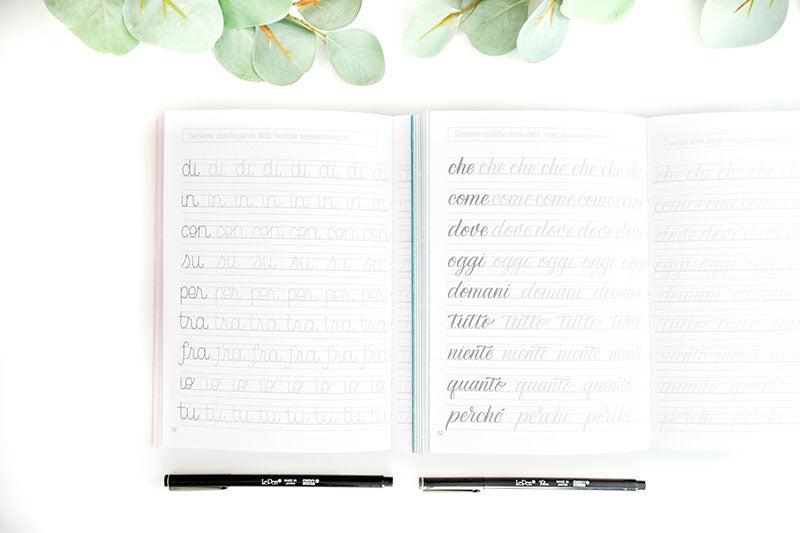 Scriviamo qualche parola BASE, ricalcale leeeeentamente
di di di di di di di di
in in in in in in in in
con con con con con con
su su su su su su
per per per per per per
tra tra tra tra tra tra
fra fra fra fra fra fra
io io io io io io io io
tu tu tu tu tu tu tu tu
52
Scriviamo qualche parola BASE, ricalcale leeeeentamente
che che che che che che che
come come come come come
dove dove dove dove dove
oggi oggi oggi oggi oggi
domani domani domani
tutto tutto tutto tutto
niente niente niente niente
quanto quanto quanto
perché perché perché
52
LePen MADE IN JAPAN
LePen MADE IN JAPAN